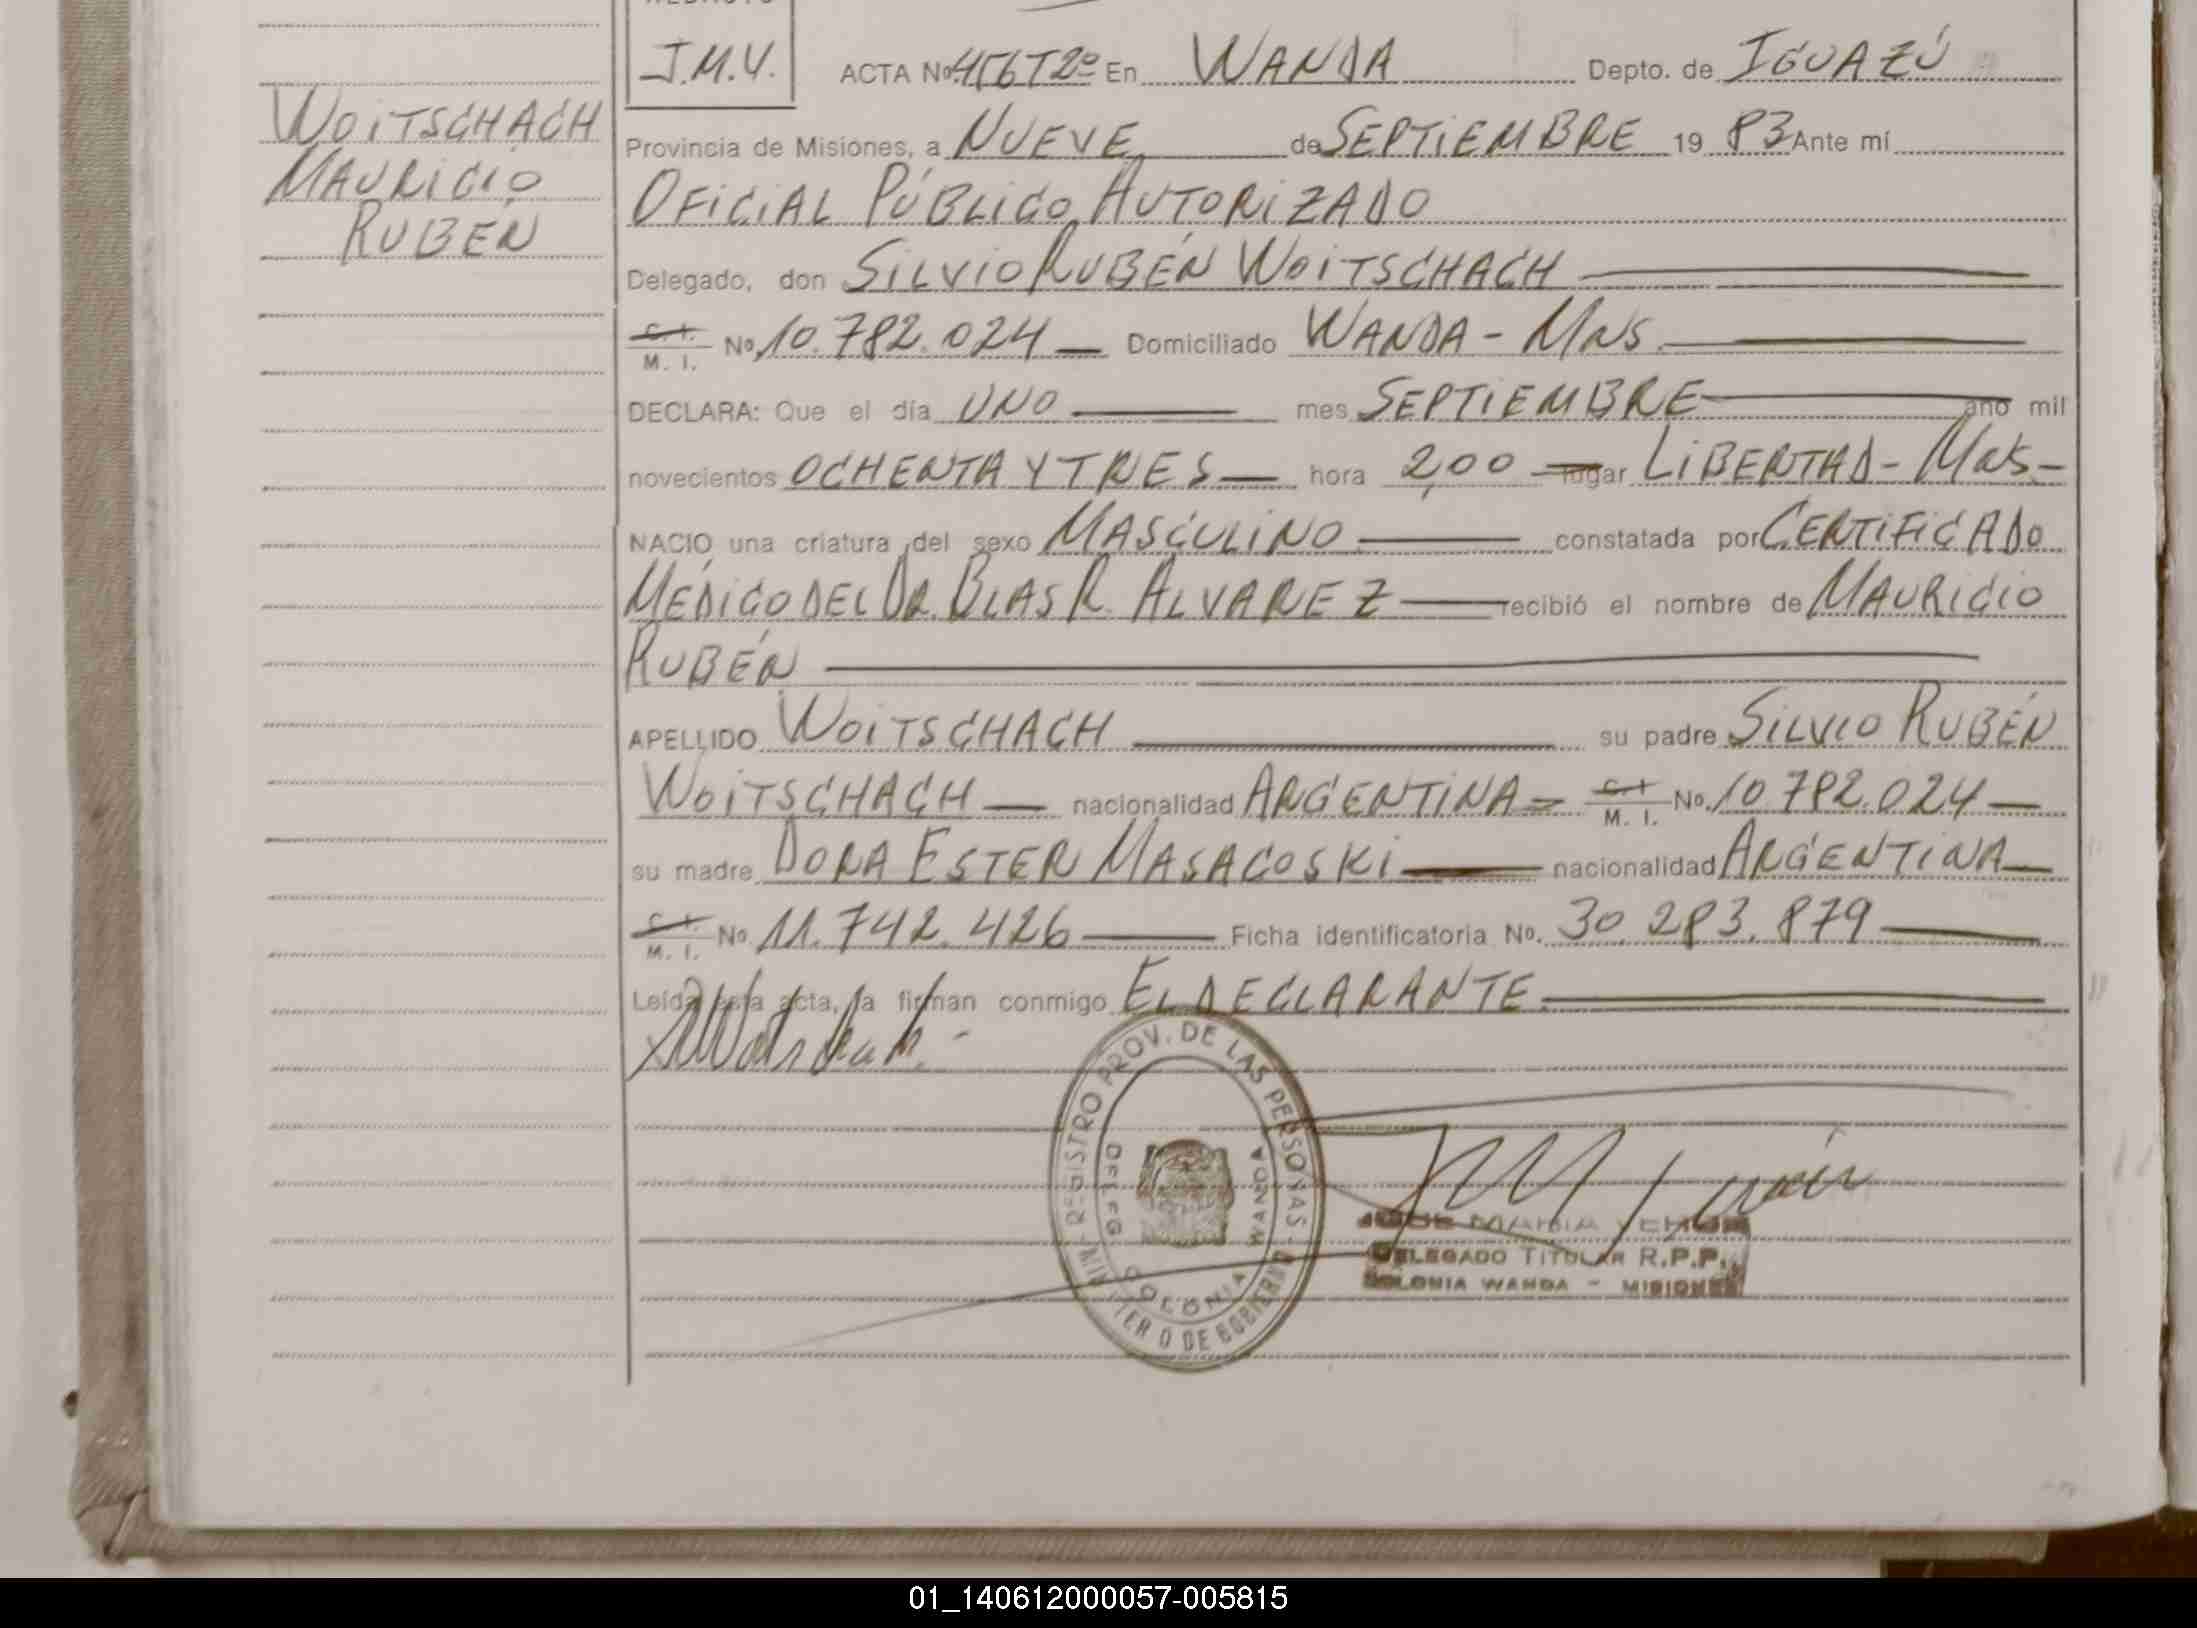 J.M.V.
ACTA No 456T2º En WANDA Depto. de IGUAZÚ
WOITSCHACH
MAURICIO
RUBÉN
Provincia de Misiones, a NUEVE de SEPTIEMBRE 19 83 Ante mí
OFICIAL PÚBLICO AUTORIZADO
Delegado, don SILVIO RUBÉN WOITSCHACH
C. I. / M. I. No. 10.782.024 — Domiciliado WANDA - MNS.
DECLARA: Que el día UNO — mes SEPTIEMBRE — año mil
novecientos OCHENTA Y TRES — hora 2,00 — lugar LIBERTAD - MNS -
NACIÓ una criatura del sexo MASCULINO — constatada por CERTIFICADO
MÉDICO DEL DR. BLAS R. ALVAREZ — recibió el nombre de MAURICIO
RUBÉN
APELLIDO WOITSCHACH — su padre SILVIO RUBÉN
WOITSCHACH — nacionalidad ARGENTINA = C. I. / M. I. No. 10.782.024 —
su madre DORA ESTER MASACOSKI — nacionalidad ARGENTINA —
C. I. / M. I. No. 11.742.426 — Ficha identificatoria No. 30.283.879 —
Leída esta acta, la firman conmigo EL DECLARANTE.
REGISTRO PROV. DE LAS PERSONAS - MINISTERIO DE GOBIERNO
DELEG. COLONIA WANDA
JOSE MARIA
DELEGADO TITULAR R.P.P.
COLONIA WANDA - MISIONES
01_140612000057-005815